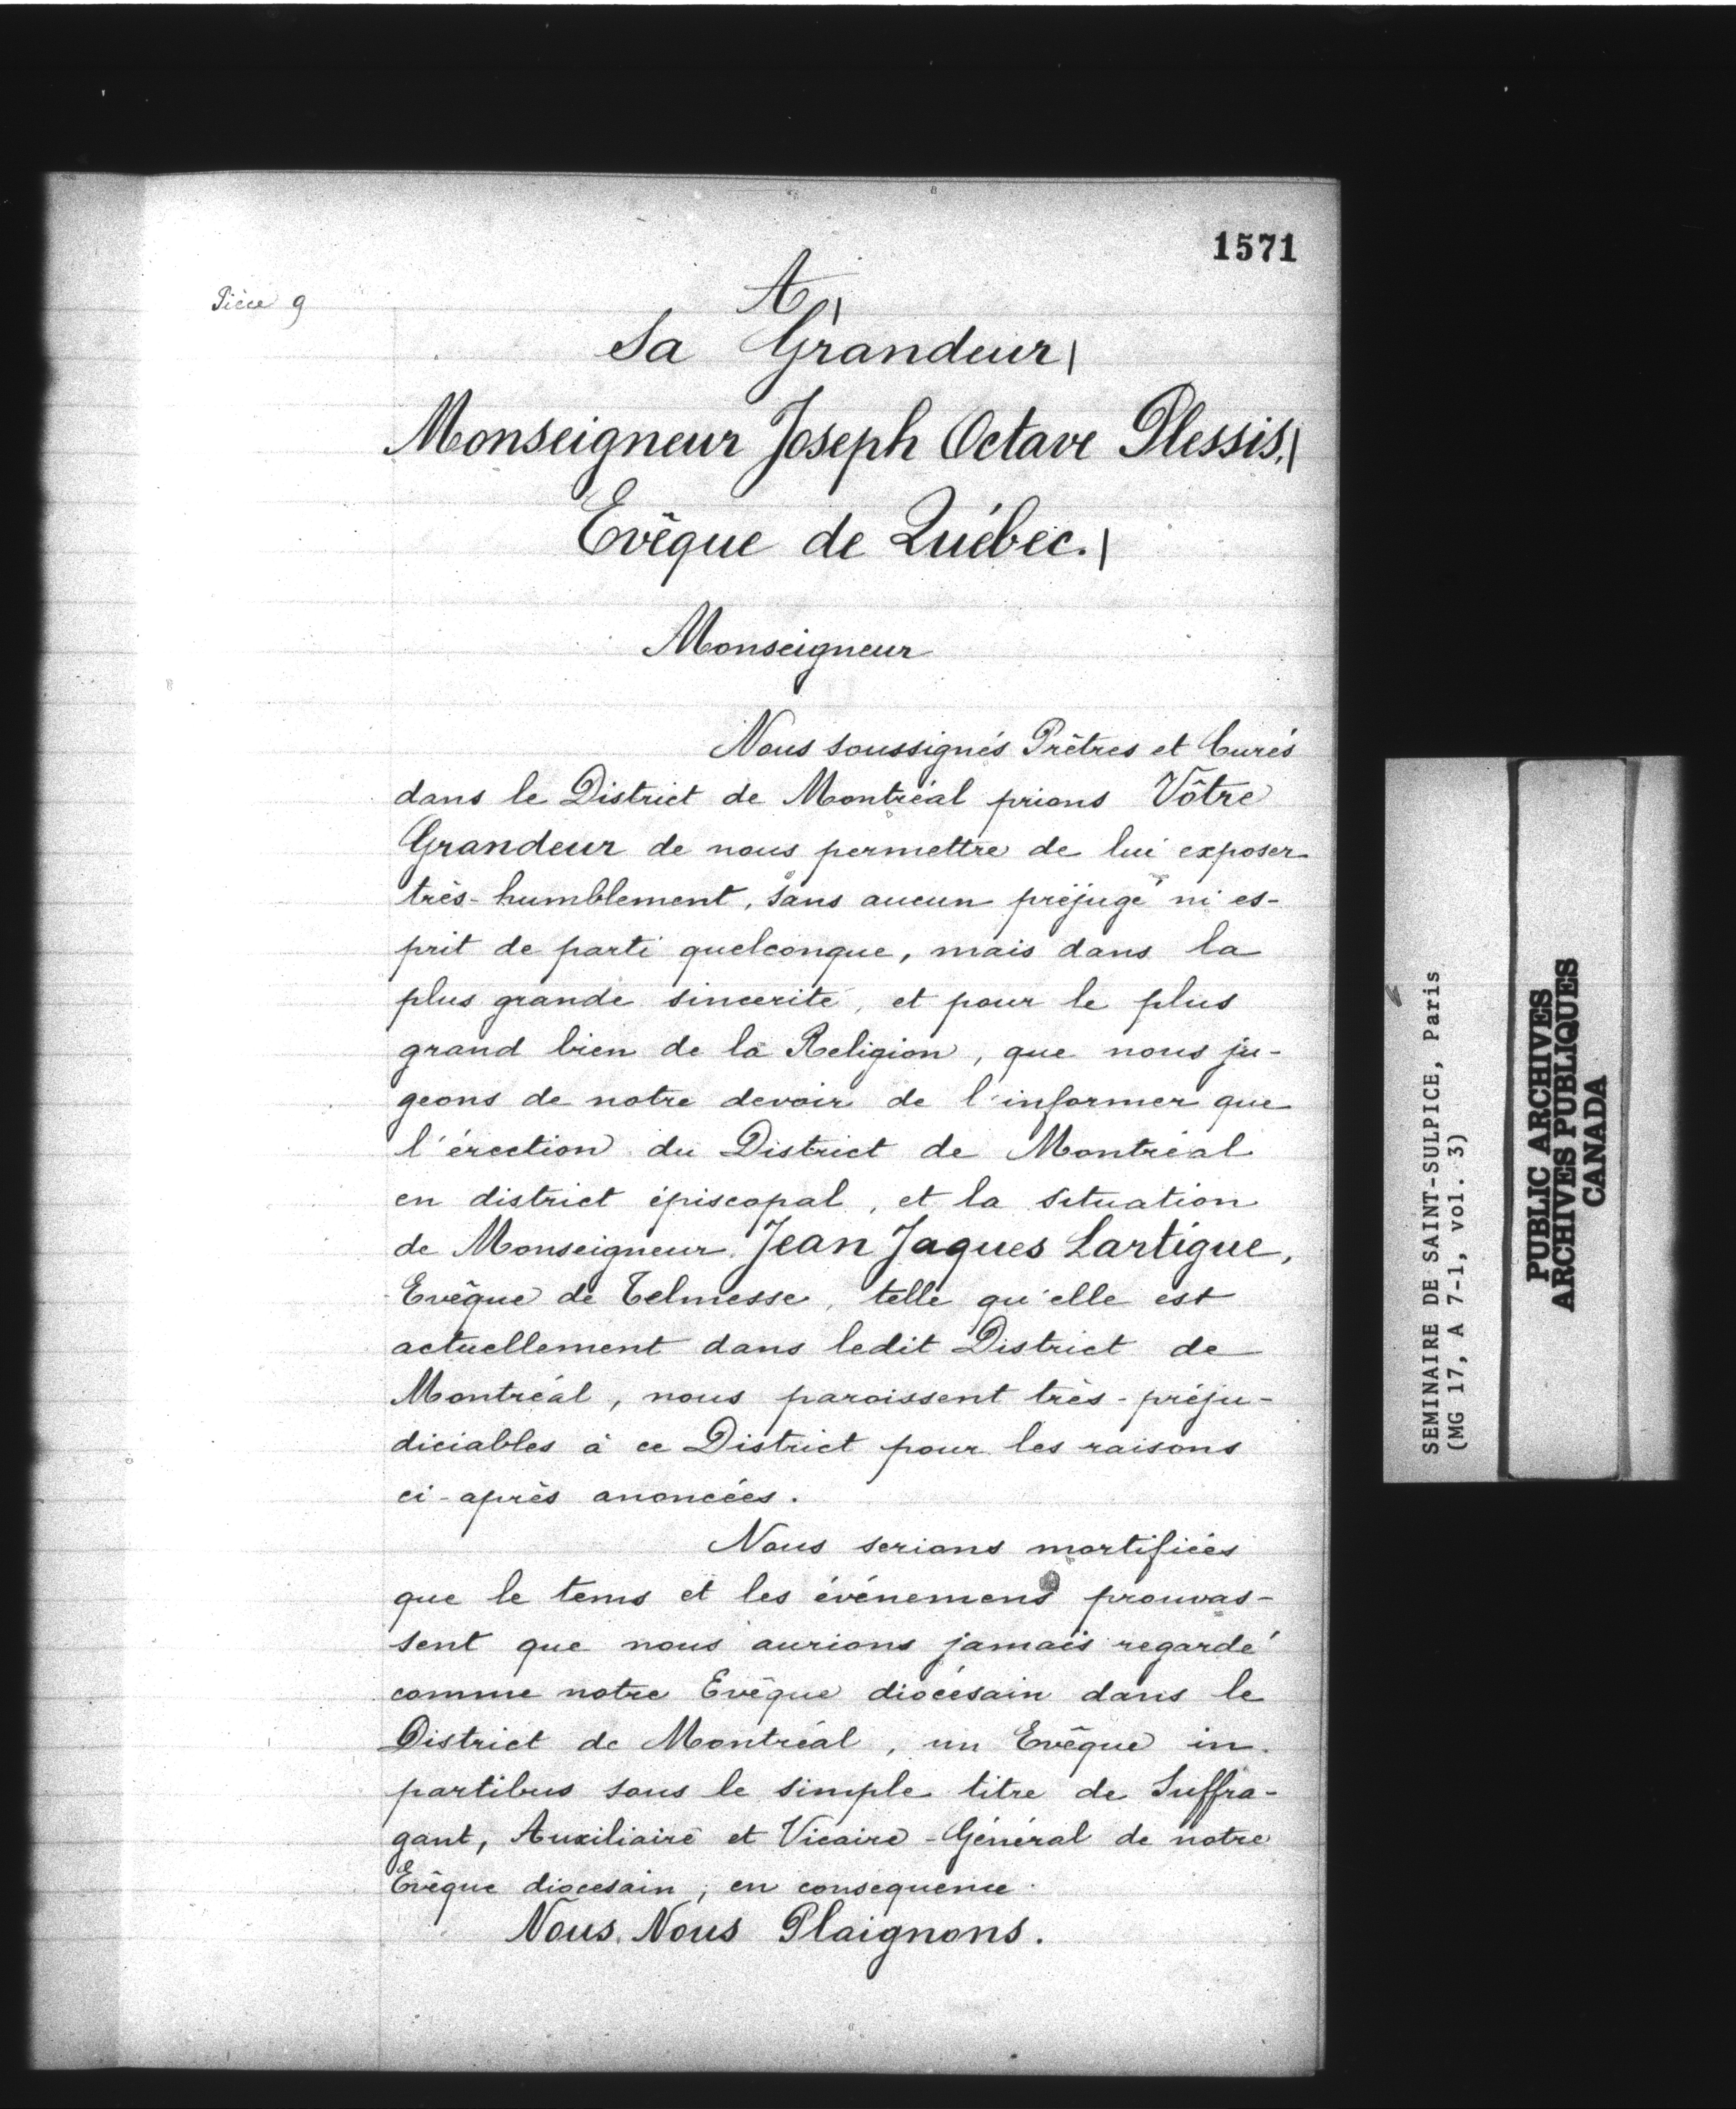 1571
Pièce 9
A
Sa Grandeur
Monseigneur Joseph Octave Plessis,
Evêque de Québec.
Monseigneur
Nous soussignés Prêtres et Curés
dans le District de Montréal prions Vôtre
Grandeur de nous permettre de lui exposer
très-humblement, sans aucun préjugé ni es-
prit de parti quelconque, mais dans la
plus grande sincerité, et pour le plus
grand bien de la Religion, que nous ju-
geons de notre devoir de l'informer que
l'érection du District de Montréal
en district épiscopal, et la situation
de Monseigneur Jean Jaques Lartigue,
Evêque de Telmesse, telle qu'elle est
actuellement dans ledit District de
Montréal, nous paroissent très-préju-
diciables à ce District pour les raisons
ci-après anoncées.
Nous serions mortifiés
que le tems et les événemens prouvas-
sent que nous aurions jamais regardé
comme notre Evêque diocésain dans le
District de Montréal, un Evêque in
partibus sous le simple titre de Suffra-
gant, Auxiliaire et Vicaire-Général de notre
Evêque diocesain; en consequence
Nous Nous Plaignons.
SEMINAIRE DE SAINT-SULPICE, Paris
(MG 17, A 7-1, vol. 3)
PUBLIC ARCHIVES
ARCHIVES PUBLIQUES
CANADA